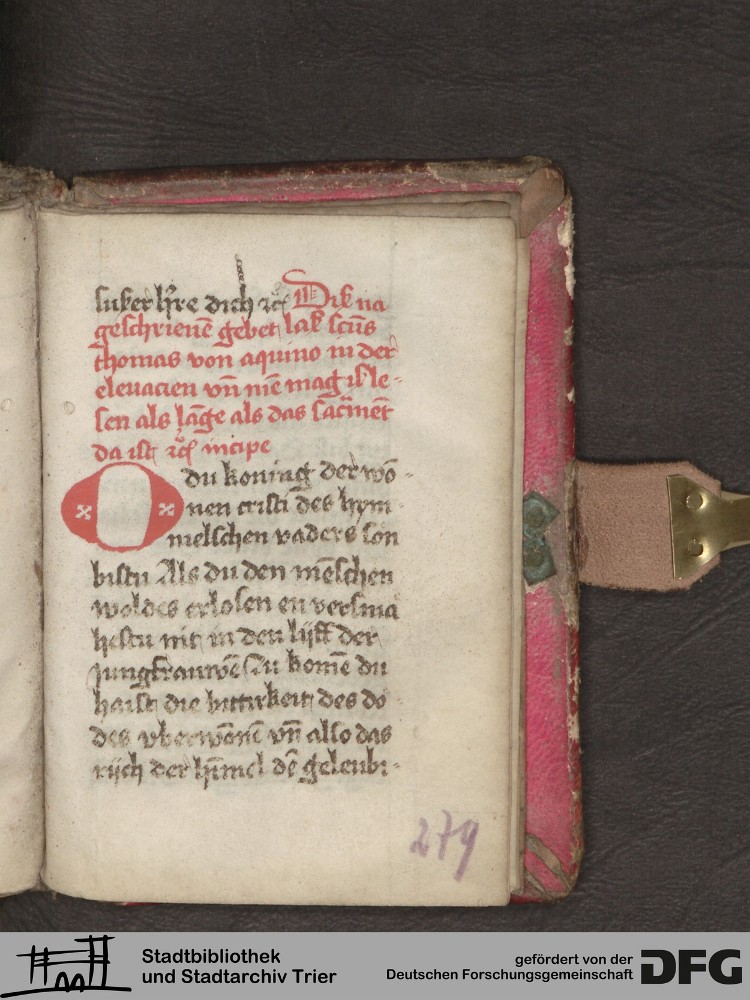 suſser h̄re dich ⁊c̄ Diß na
geschrieuē gebet laß scūs
thomas von aquino in der
eleuacien vn̄ mē mag iß le-
sen als lāge als das sac̄mēt
da ist ⁊c̄ incipe
O du koning der wō-
nen cristi des hym
melschen vaders son
bistu Als du den mēschen
woldes erlosen en versma
hestu nit in den lijff der
Jungfrauwē Zu komē du
haist die bittirkeit des do
des vberwōnē vn̄ also das
rijch der hȳmel dē geleubi-
279
Stadtbibliothek
und Stadtarchiv Trier
gefördert von der
Deutschen Forschungsgemeinschaft
DFG